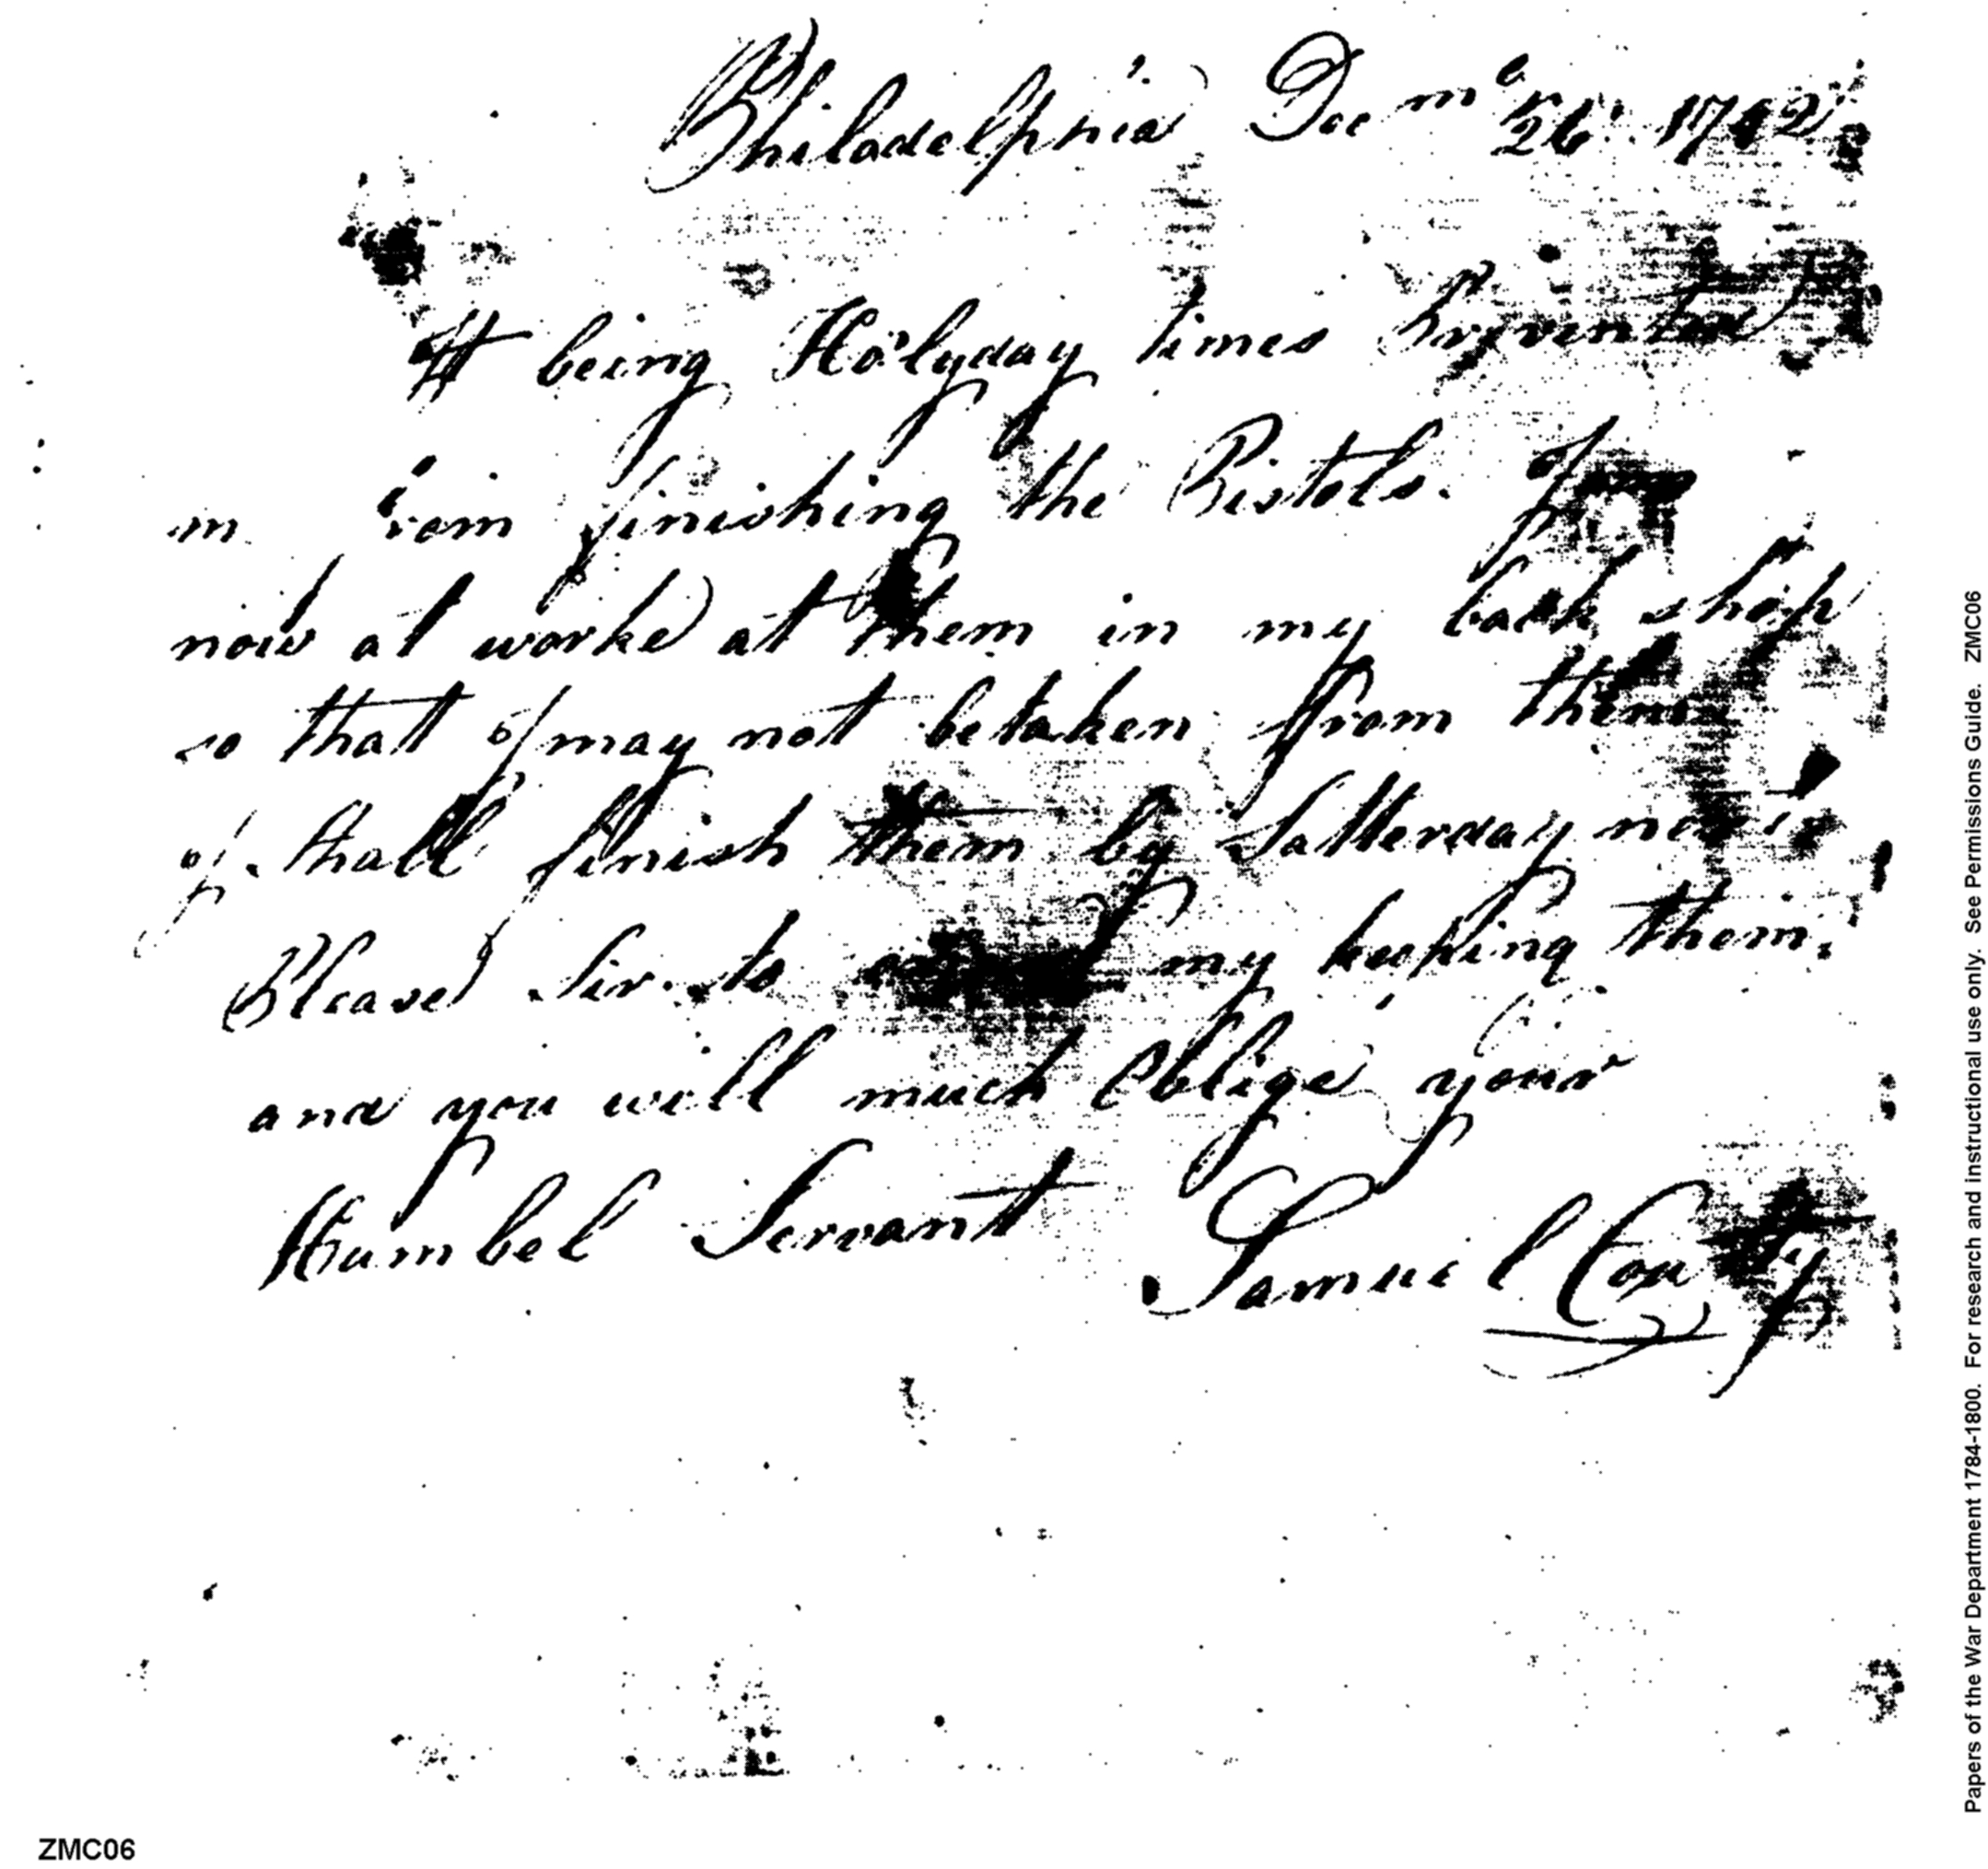 Philadelphia Decm 26 1792
It being Holyday times Prevented
m from finishing the Pistols. I
now at worke at them in my back shop
so that I may not be taken from them
I shall finish them by Satterday next
Please Sir to my keeping them
and you will much Oblige your
Humbel Servant Samuel Couty
Papers of the War Department 1784-1800. For research and instructional use only. See Permissions Guide. ZMC06
ZMC06